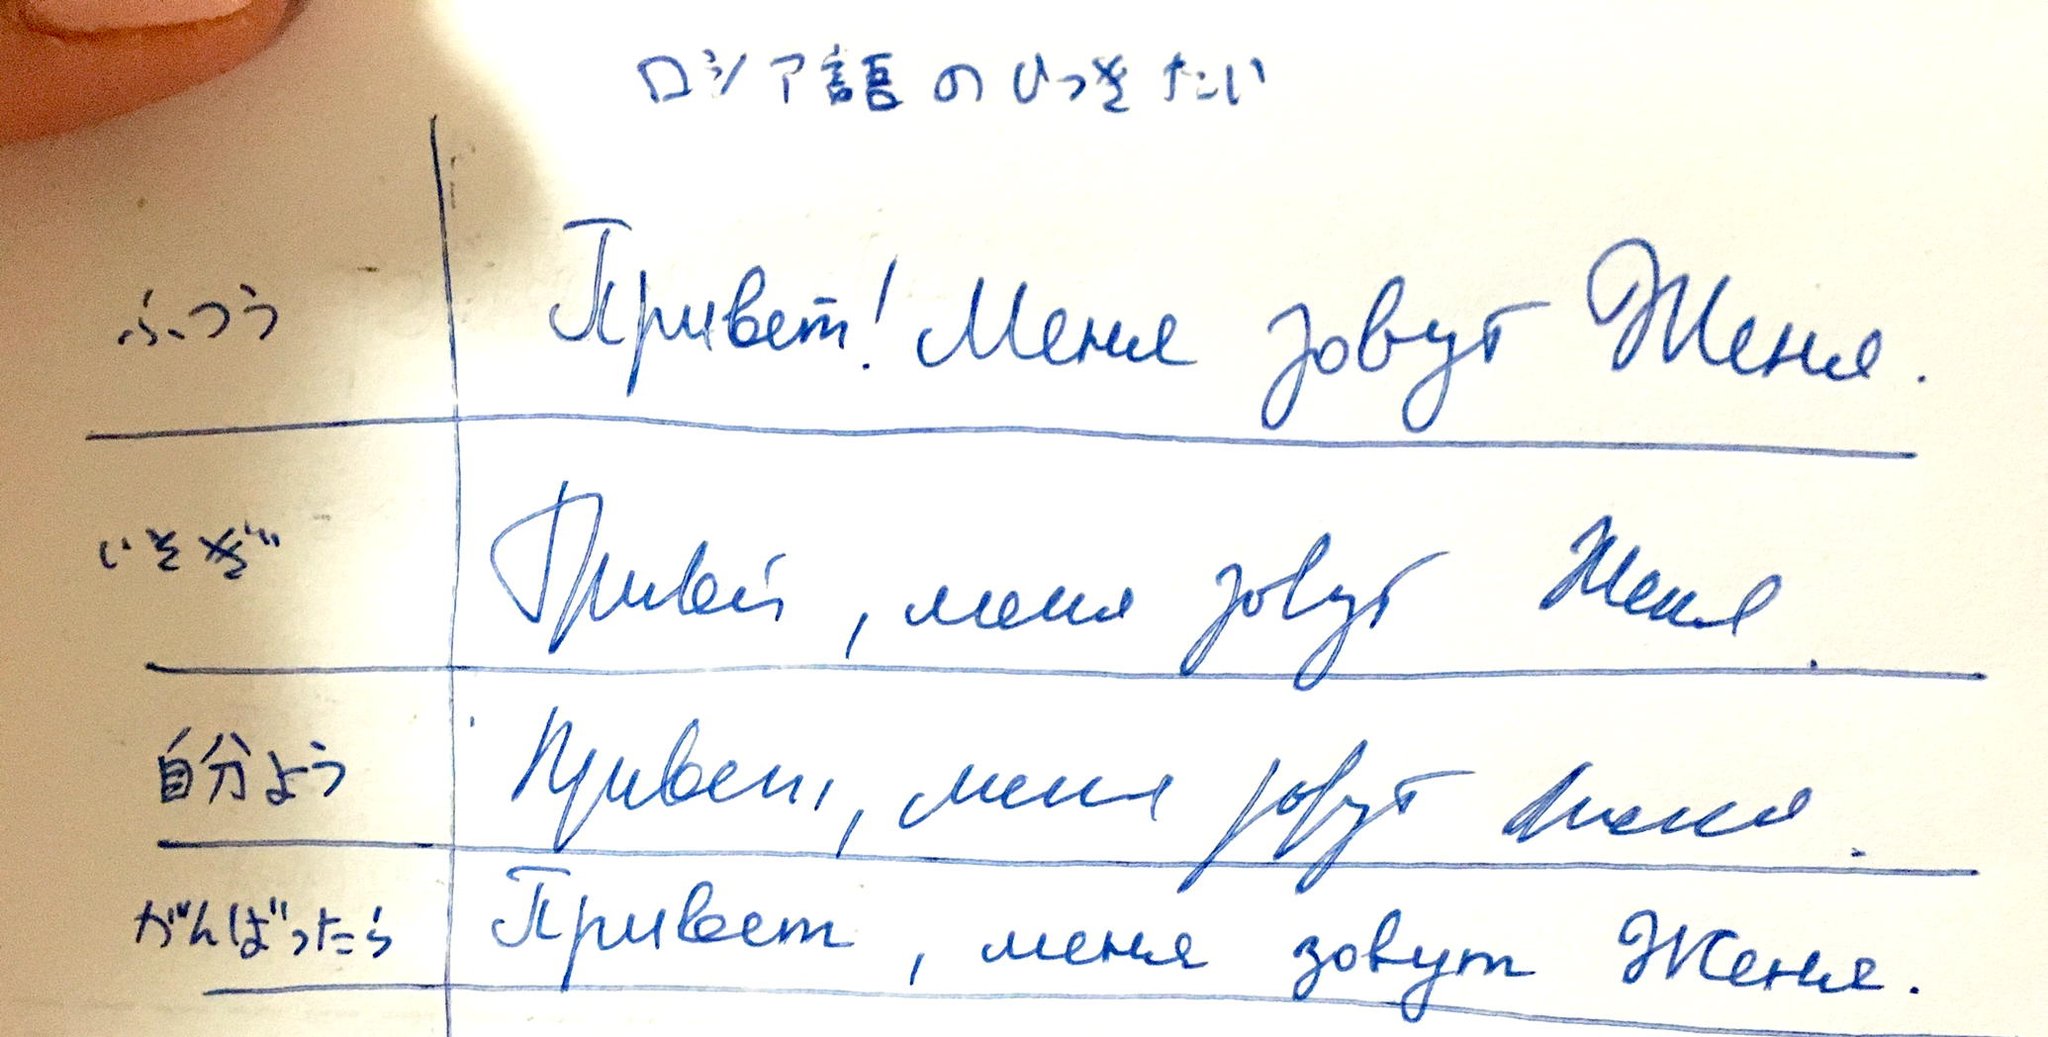 ロシア語のひっきたい
ふつう Привет! Меня зовут Женя.
いそぎ Привет, меня зовут Женя.
自分よう Привет, меня зовут Женя.
がんばったら Привет, меня зовут Женя.